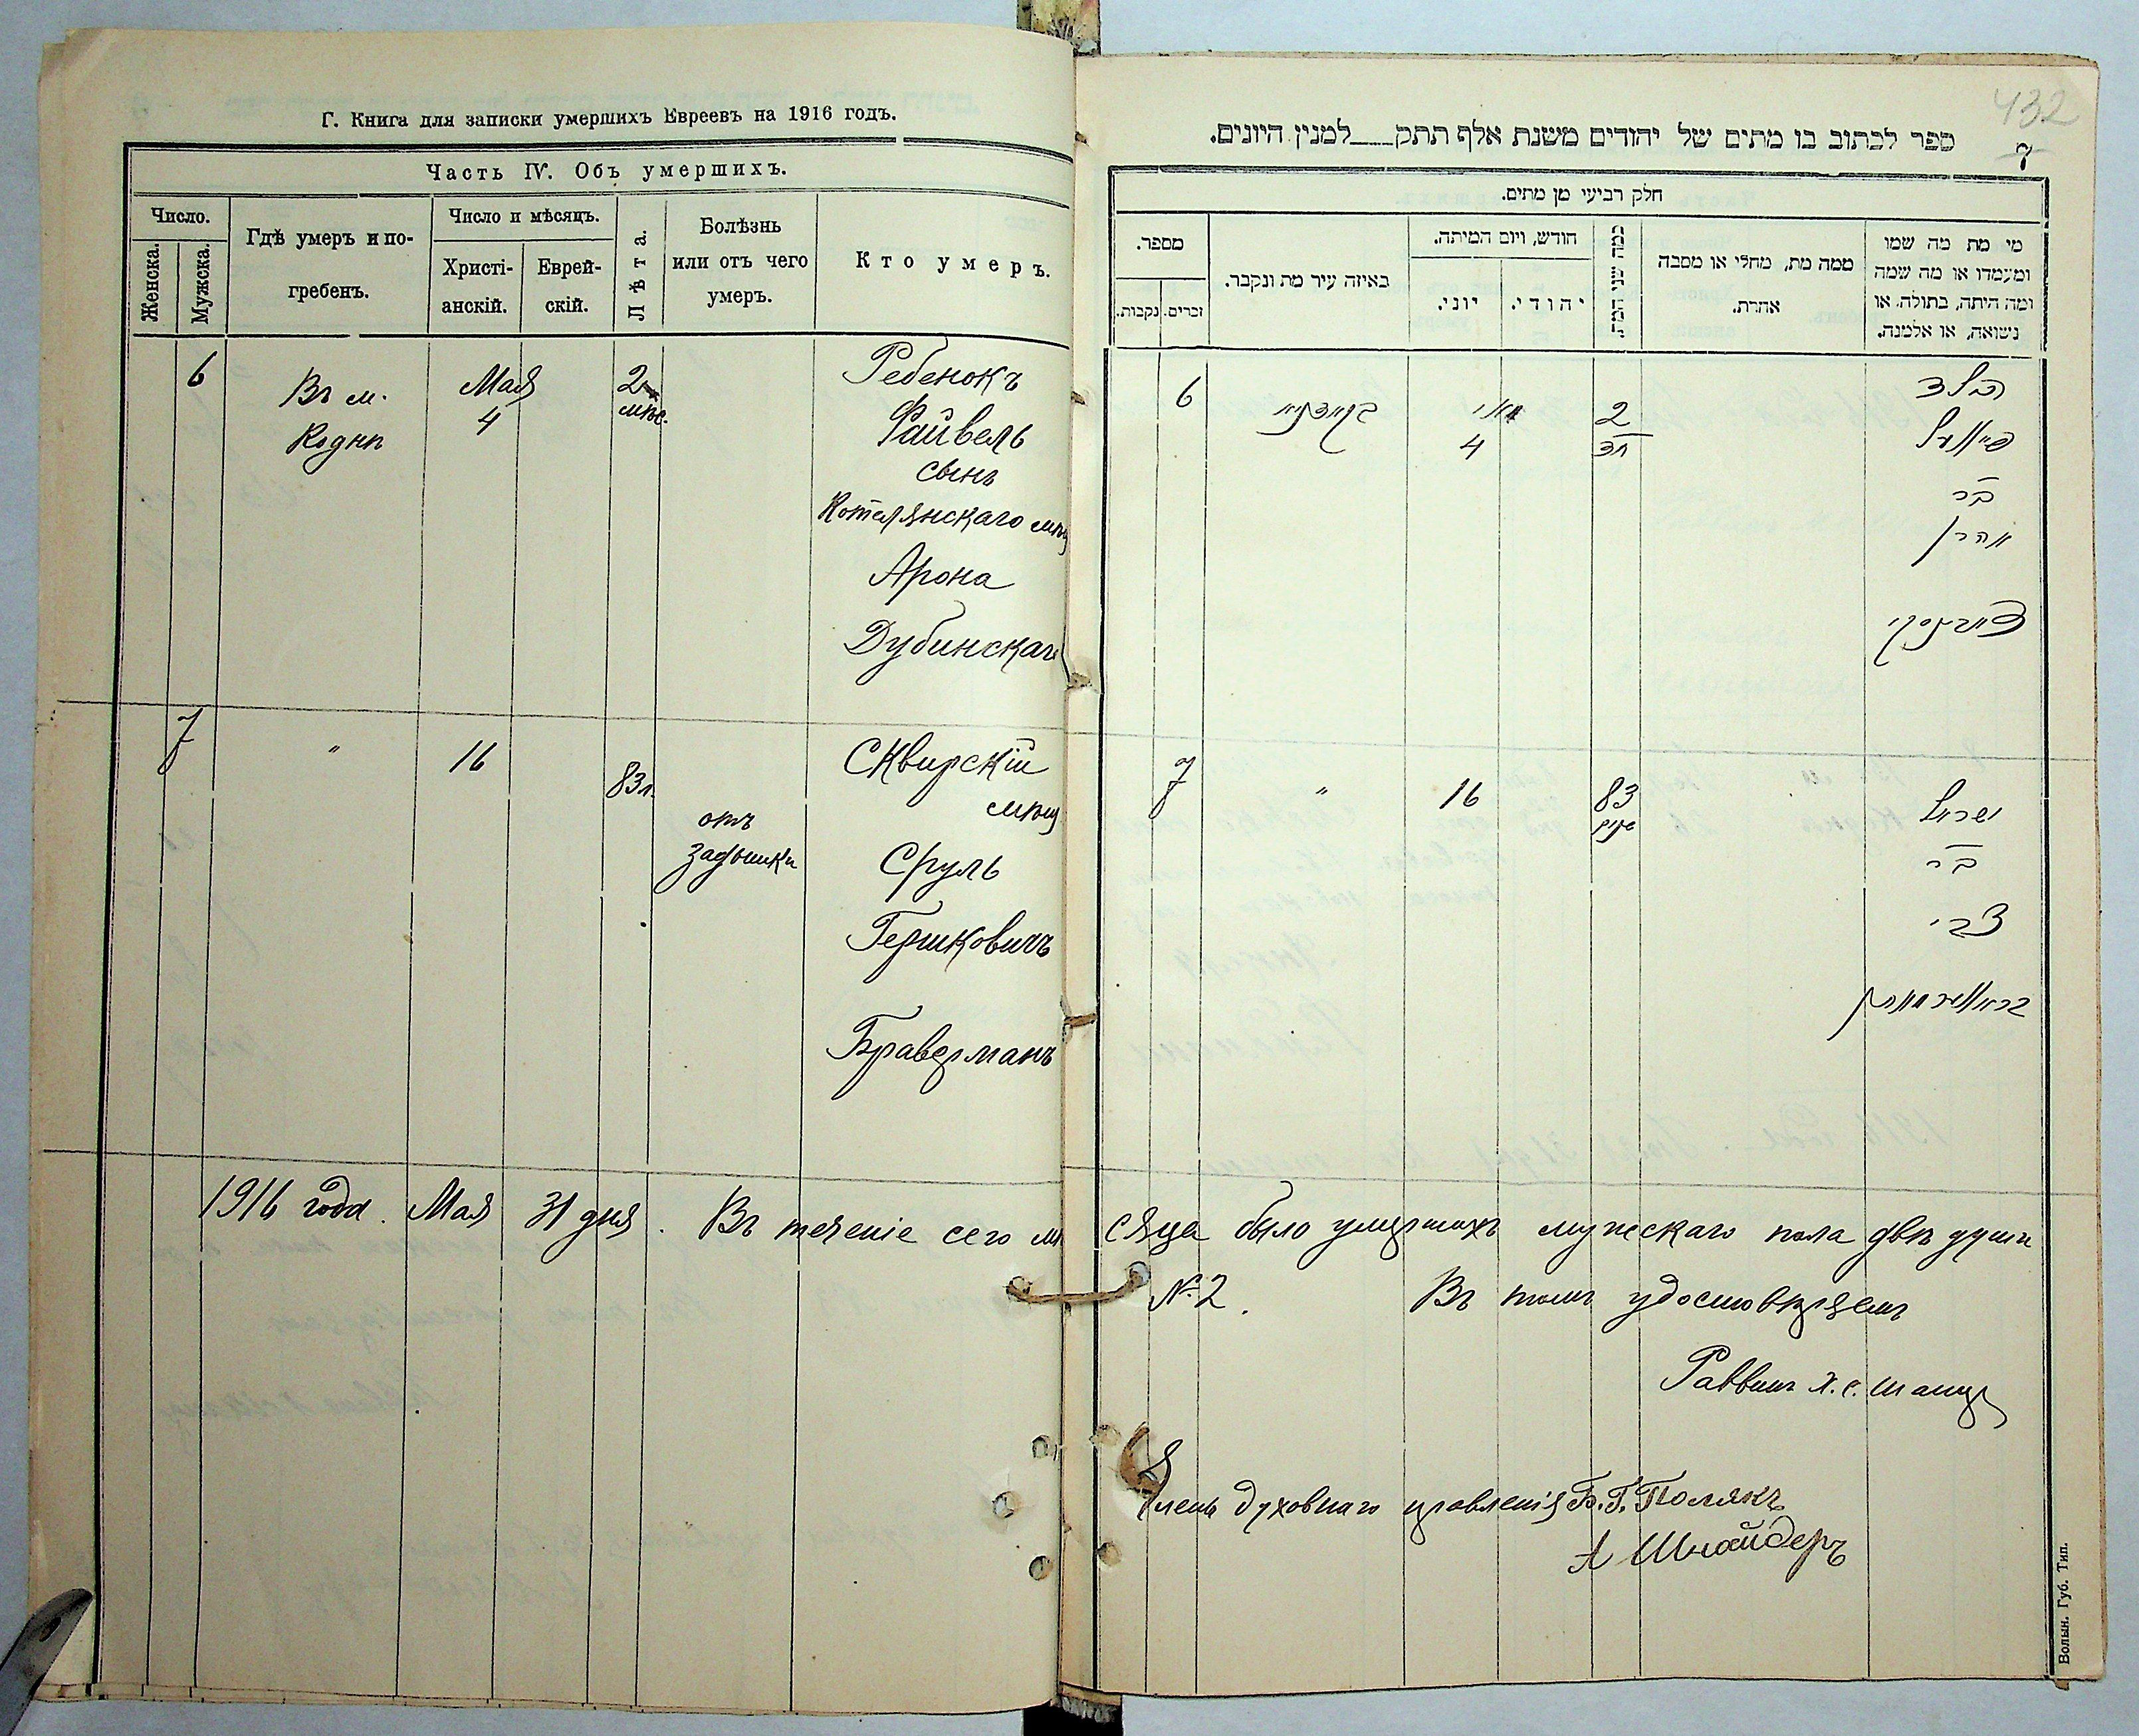 Г. Книга для записки умершихъ Евреевъ на 1916 годъ.
Часть IV. Объ умершихъ.
Число.
Женска.
Мужска.
Гдѣ умеръ и по-
гребенъ.
Число и мѣсяцъ.
Христі-
анскій.
Еврей-
скій.
Лѣта.
Болѣзнь
или отъ чего
умеръ.
Кто умеръ.
6
Въ м.
Кодня
Мая
4
2
мѣс.
Ребенокъ
Файвель
сынъ
Котелянскаго мѣщ
Арона
Дубинскаго
7
"
16
83 л.
отъ
задышки
Сквирскій
мѣщ
Сруль
Гершковичъ
Браверманъ
1916 года. Мая 31 дня. Въ теченіе сего мѣ
432
7
ספר לכתוב בו מתים של יהודים משנת אלף תתק___למנין היונים.
חלק רביעי מן מתים.
מספר.
זכרים.
נקבות.
באיזה עיר מת ונקבר.
חודש, ויום המיתה.
יוני.
יהודי.
כמה שני המת.
ממה מת, מחלי או מסבה
אחרת.
מי מת מה שמו
ומעמדו או מה שמה
ומה היתה, בתולה, או
נשואה, או אלמנה.
6
מאי
4
2
חד
הילד
פייוויל
בר
אהרן
דובינסקי
7
"
16
83
שנים
ישראל
בר
צבי
בראווערמאן
сяца было умершихъ мужескаго пола двѣ души
№ 2. Въ томъ удостовѣряемъ
Раввинъ Х. С.
Членъ духовнаго правленія Б. Г. Полякъ
А Шнайдеръ
Волын. Губ. Тип.